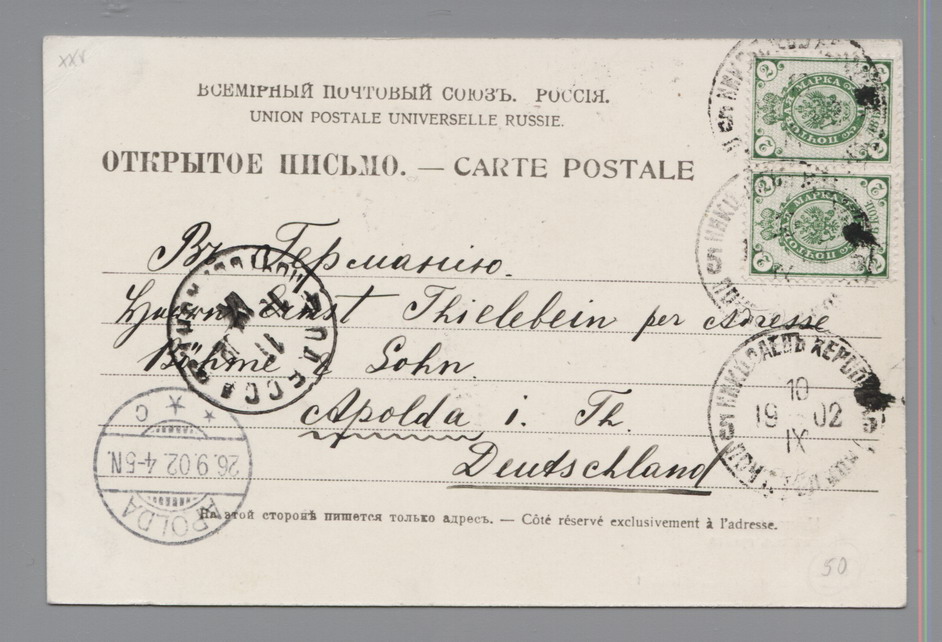 ВСЕМІРНЫЙ ПОЧТОВЫЙ СОЮЗЪ. РОССІЯ.
UNION POSTALE UNIVERSELLE RUSSIE.
ОТКРЫТОЕ ПИСЬМО. — CARTE POSTALE
Въ Германію.
Ernst Thielebein per Adresse
Böhme & Sohn.
Apolda i. Th.
Deutschland
На этой сторонѣ пишется только адресъ. — Côté réservé exclusivement à l'adresse.
2 МАРКА 2
2 МАРКА 2
НИКОЛАЕВЪ ХЕРСОН
10
19 02
IX
ОДЕССА
11
APOLDA
26.9.02. 4-5N.
C
50
xxv